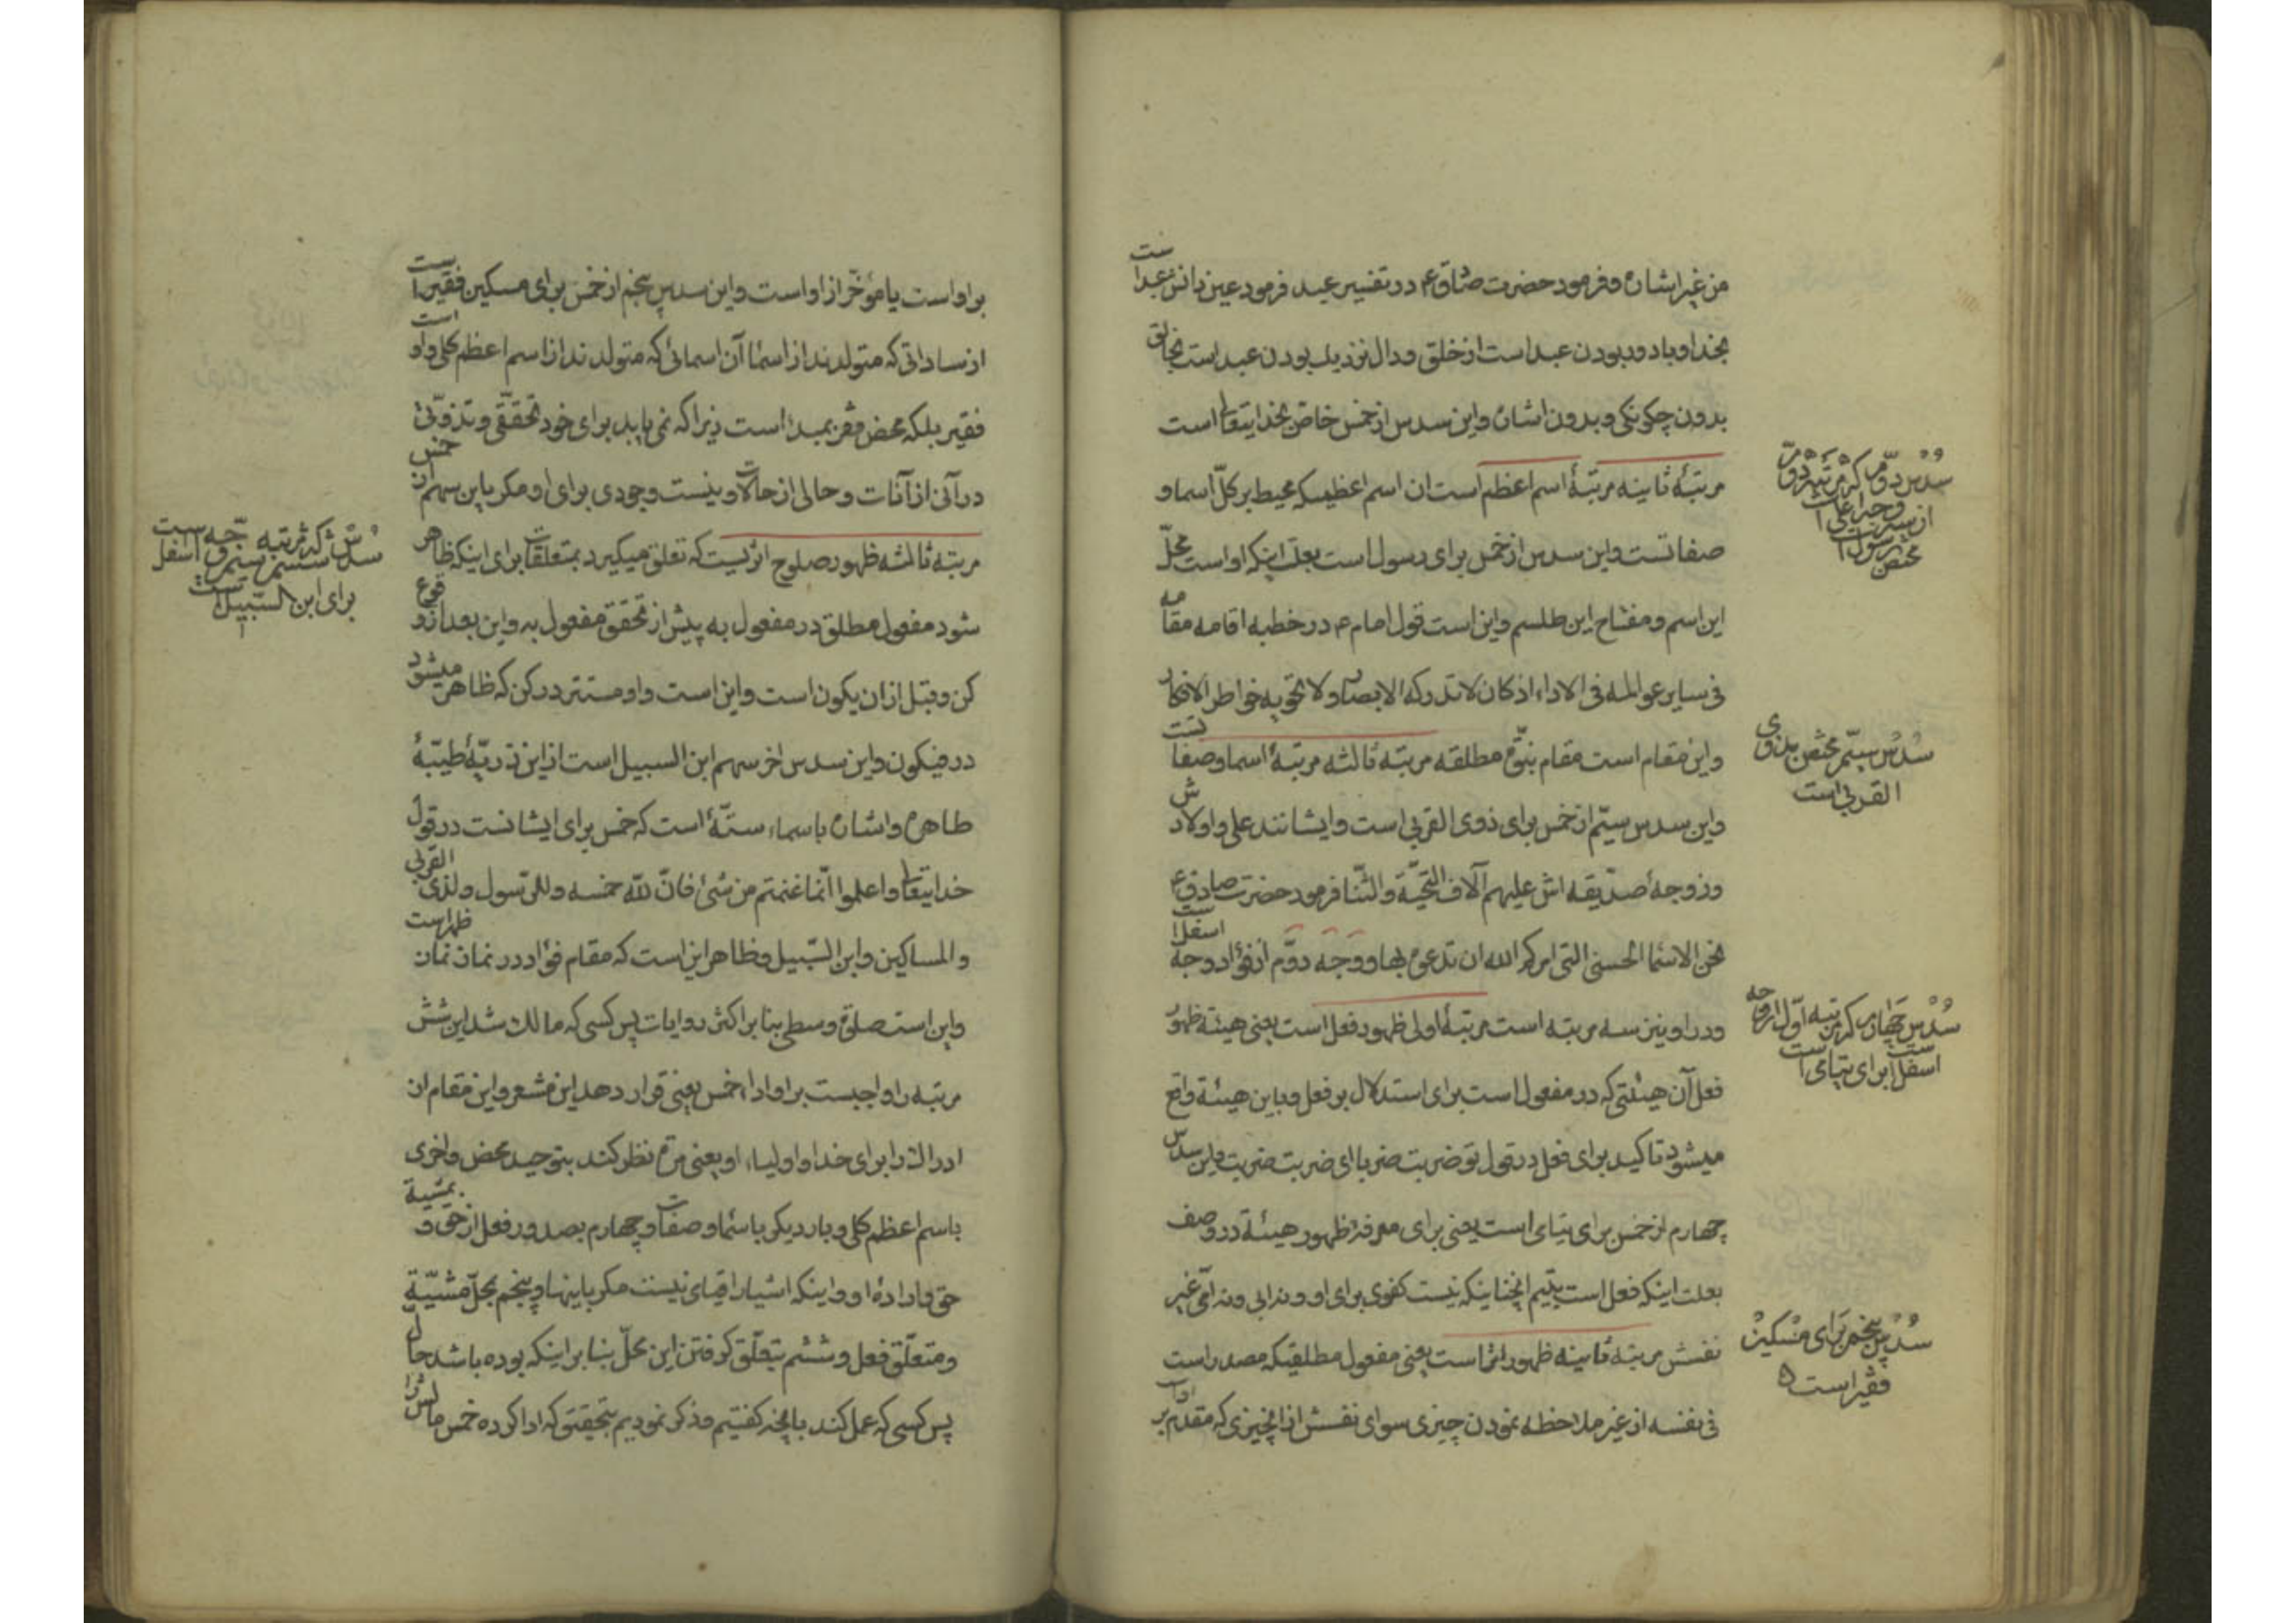 من غیر اشاره و فرمود حضرت صادق ع در تفسیر عبد فرمود عین دانش عبد است
بخدا و با دور بودن عبد است از خلق و دال نزدیک بودن عبد است بخالق
بدون چکونکی و بدون اشاره و این سدس از خمس خاص بخدایتعالی است
مرتبۀ ثانیه مرتبۀ اسم اعظم است ان اسم اعظمیکه محیط بر کلّ اسما و
صفاتست و این سدس از خمس برای رسول است بعلت اینکه او است محلّ
این اسم و مفتاح این طلسم و این است قول امام م در خطبه اقامه مقامه
فی سایر عوالمه فی الاداء اذ کان لا تدرکه الابصار و لا تحویه خواطر الافکار
و این مقام است مقام نبوّة مطلقه مرتبه ثالثه مرتبۀ اسما و صفاتست
و این سدس سیّم از خمس برای ذوی القربی است و ایشانند علی و اولادش
و زوجۀ صدّیقه اش علیهم آلاف التحیّة و الثّنا فرمود حضرت صادق ع
نحن الاسماء الحسنی التی امرکم الله ان تدعوه بها و وجه دوّم از فؤاد وجه اسفل است
و در او نیز سه مرتبه است مرتبۀ اولی ظهور فعل است یعنی هیئة ظهور
فعل آن هیئتی که در مفعول است برای استدلال بر فعل و باین هیئة واقع
میشود تاکید برای فعل در قول تو ضربت ضربا ای ضربت ضربت و این سدس
چهارم از خمس برای یتامی است یعنی برای معرفة ظهور هیئة در وصف
بعلت اینکه فعل است یتیم انچنانیکه نیست کفوی برای او و نه ابی و نه امّی غیر
نفسش مرتبه ثانیه ظهور اثر است یعنی مفعول مطلقیکه مصدر است
فی نفسه از غیر ملاحظه نمودن چیزی سوای نفسش از انچیزی که مقدم بر
سُدس دوّم که مرتبه دوّم
از وجه اعلی است
مختص رسول است
سُدس سیّم مختص بذوی
القربی است
سُدس چهارم که مرتبه اول از وجه
اسفل است برای یتامی است
سُدس پنجم برای مسکین
فقیر است
بر او است یا مؤخّر از او است و این سدس پنجم از خمس برای مسکین فقیر است
از ساداتی که متولدند از اسماء آن اسمائی که متولدند از اسم اعظم کلی و او است
فقیر بلکه محض فقر بمبدا است زیرا که نمی یابد برای خود تحققّی و تذوّتی
در آنی از آنات و حالی از حالات و نیست وجودی برای او مکر باین سهم از خمس
مرتبه ثالثه ظهور صلوح اثریست که تعلق میکیرد بمتعلقات برای اینکه ظاهر
شود مفعول مطلق در مفعول به پیش از تحقق مفعول به و این بعد از وقوع
کن و قبل از ان یکون است و این است واو مستتر در کن که ظاهر میشود
در فیکون و این سدس اخر سهم ابن السبیل است از این ذریّۀ طیّبۀ
طاهره و اشاره باسماء ستّۀ است که خمس برای ایشانست در قول
خدایتعالی و اعلموا انّما غنمتم من شئ فانّ للّه خمسه و للرّسول و لذی القربی
و المساکین و ابن السّبیل و ظاهر این است که مقام فؤاد در نماز نماز ظهر است
و این است صلوة وسطی بنا بر اکثر روایات پس کسی که مالک شد این شش
مرتبه را واجبست بر او اداء خمس یعنی قرار دهد این مشعر و این مقام از
ادراک را برای خدا و اولیاء او یعنی مرّة نظر کند بتوحید محض و اخری
باسم اعظم کلی و بار دیکر باسماء و صفات و چهارم بصدور فعل از حق و بمشیة
حق و ارادۀ او و اینکه اشیا را قیامی نیست مکر باینها و پنجم بمحلّ مشیّة
و متعلّق فعل و ششم بتعلّق کرفتن این محلّ بنا بر اینکه بوده باشد حال
پس کسی که عمل کند بانچه کفتیم و ذکر نمودیم بتحقیق که ادا کرده خمس مالش را
سُدس ششم که مرتبه سیّم وجه اسفل است
برای ابن السّبیل است